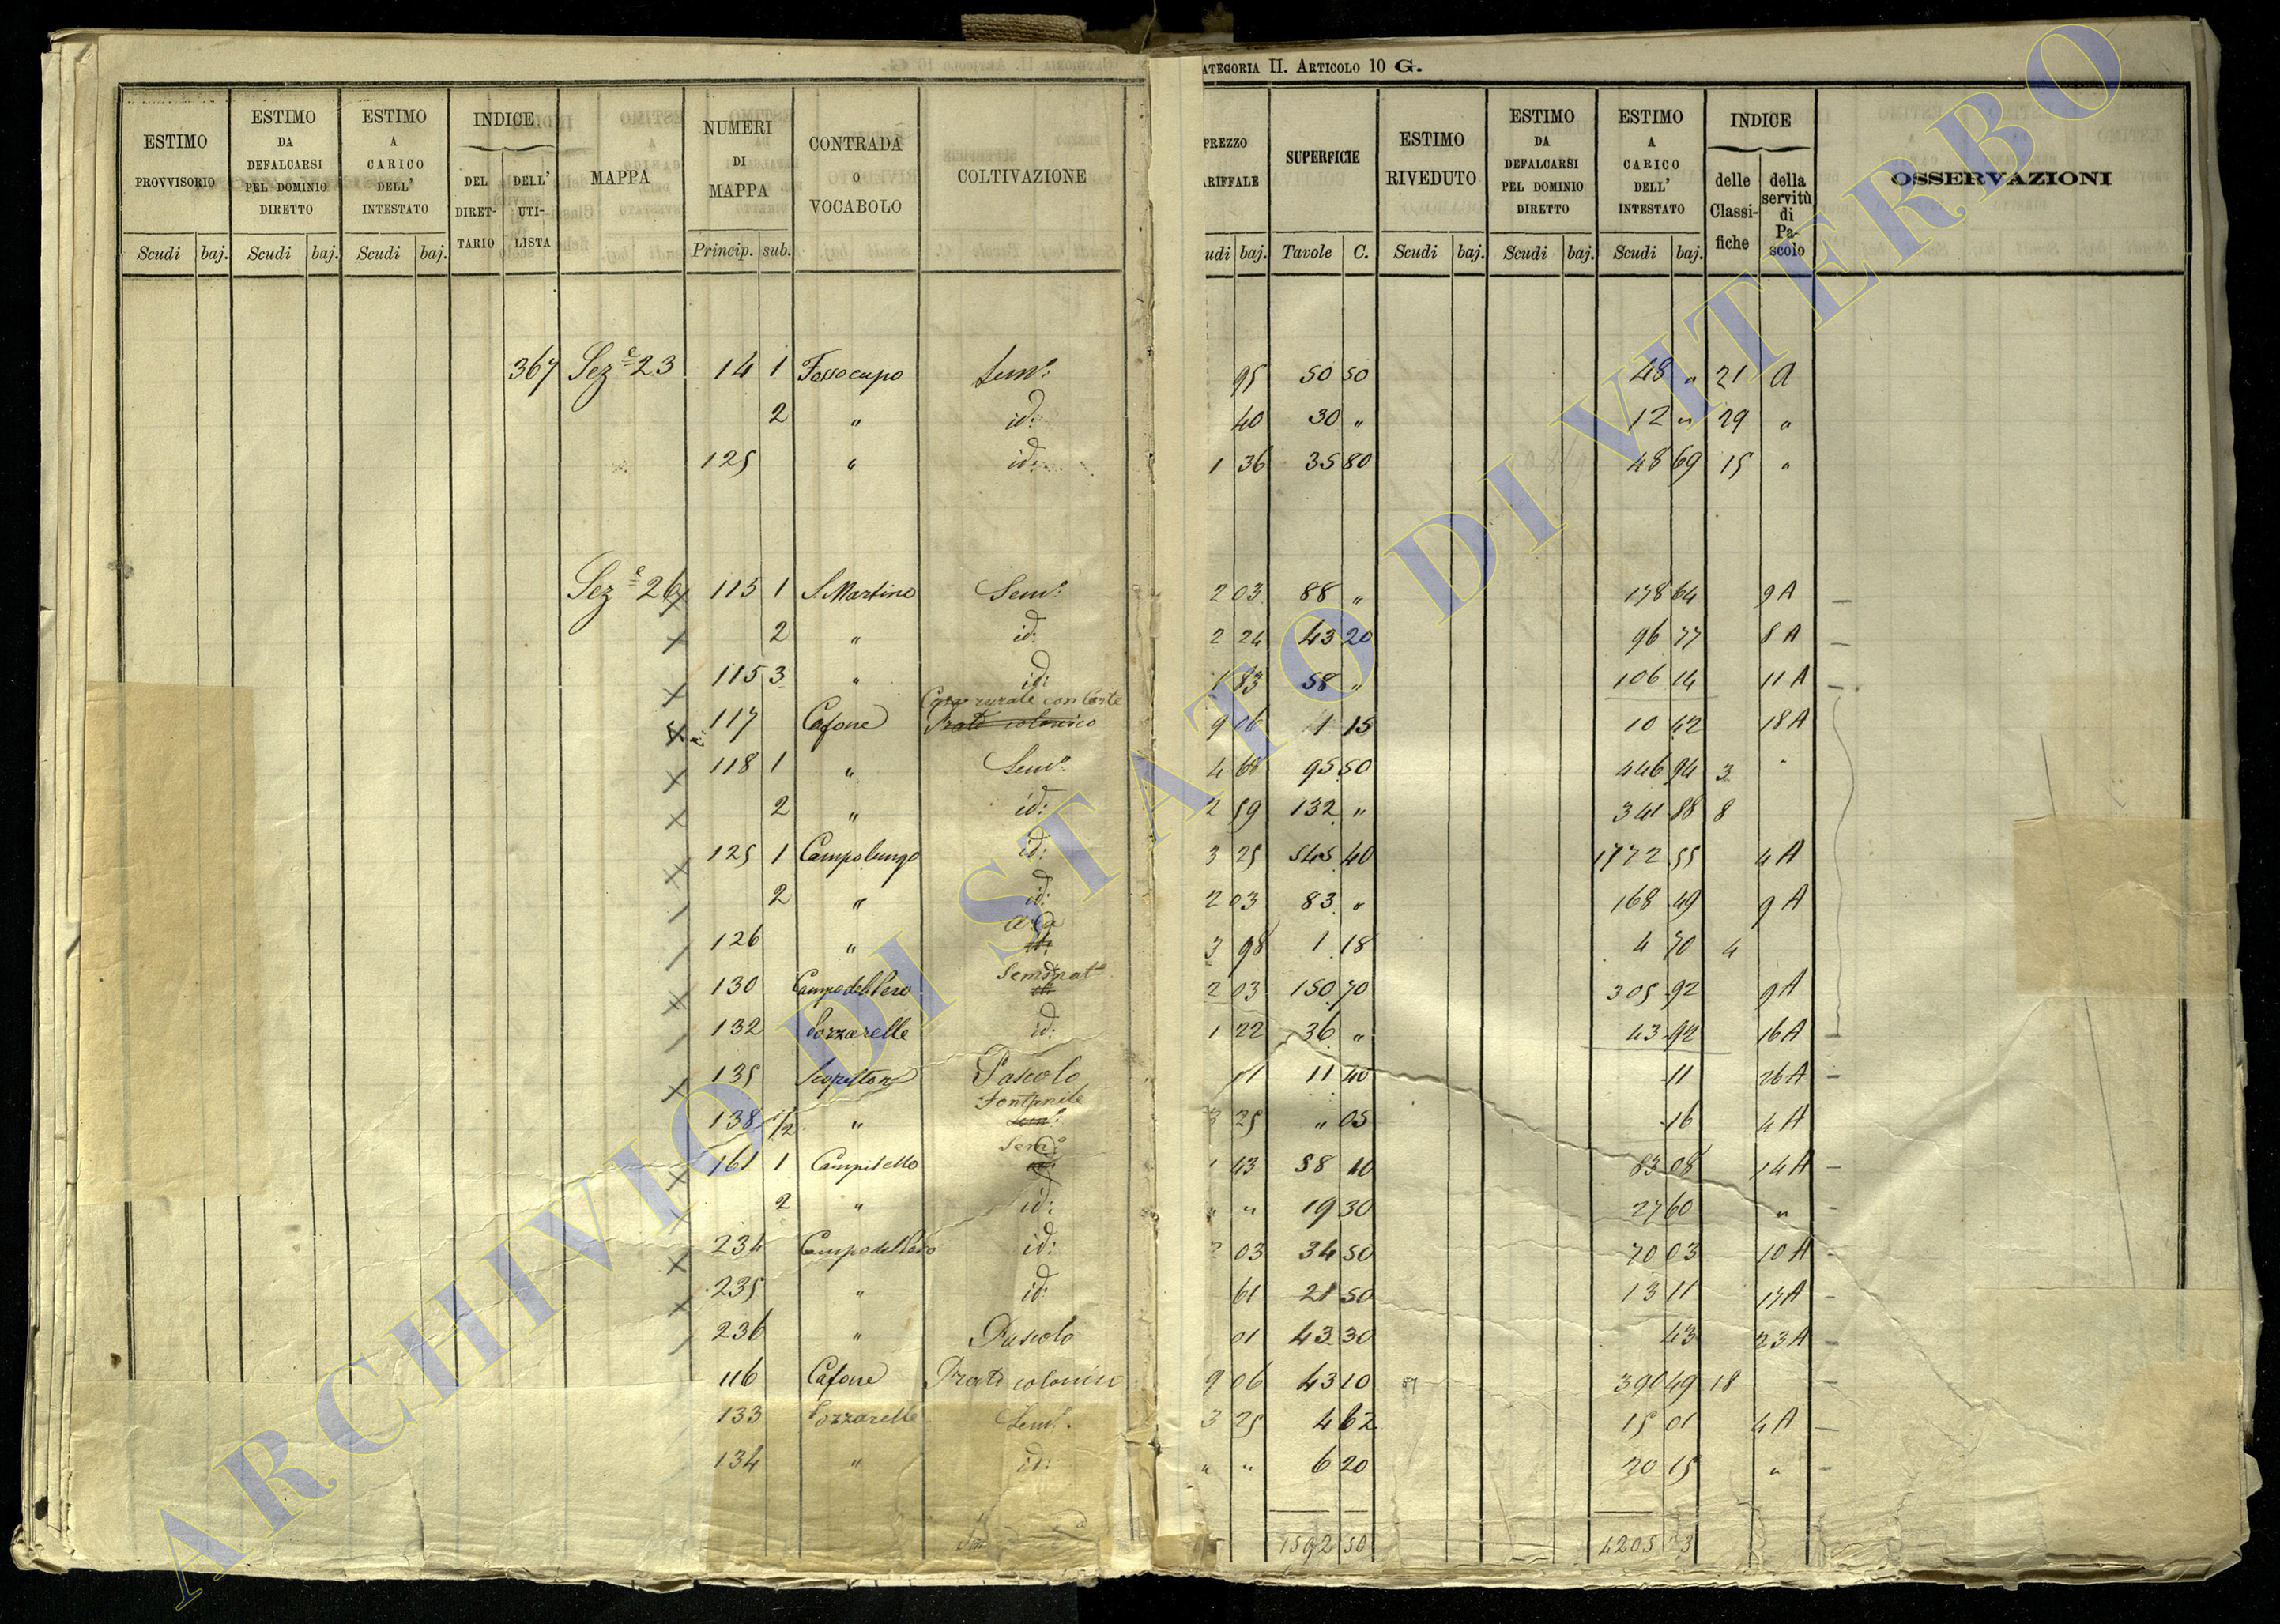 ATEGORIA II. ARTICOLO 10 G.
ESTIMO PROVVISORIO Scudi baj.
ESTIMO DA DEFALCARSI PEL DOMINIO DIRETTO Scudi baj.
ESTIMO A CARICO DELL' INTESTATO Scudi baj.
INDICE DEL DIRET-TARIO DELL' UTI-LISTA
MAPPA
NUMERI DI MAPPA Princip. sub.
CONTRADA O VOCABOLO
COLTIVAZIONE
PREZZO ARIFFALE udi baj.
SUPERFICIE Tavole C.
ESTIMO RIVEDUTO Scudi baj.
ESTIMO DA DEFALCARSI PEL DOMINIO DIRETTO Scudi baj.
ESTIMO A CARICO DELL' INTESTATO Scudi baj.
INDICE delle Classi-fiche della servitù di Pa-scolo
OSSERVAZIONI
367 Sez.e 23 14 1 Fossocupo Sem.o 95 50 50 48 " 21 A
2 " id: 40 30 " 12 " 29 "
125 " id: 1 36 35 80 48 69 15 "
Sez.e 26 115 1 S. Martino Sem.o 2 03 88 " 178 64 9 A
2 " id: 2 24 43 20 96 77 8 A
115 3 " id: 1 83 58 " 106 14 11 A
Casa rurale con Corte
117 Cafone Prato colonico 9 06 1 15 10 42 18 A
118 1 " Sem.o 4 68 95 50 446 94 3 "
2 " id: 2 59 132 " 341 88 8
125 1 Campolungo id: 3 25 545 40 1772 55 4 A
2 " id: 2 03 83 " 168 49 9 A
Aia
126 " id: 3 98 1 18 4 70 4
Seminat.o
130 Campo del Pero id: 2 03 150 70 305 92 9 A
132 Pozzarelle id: 1 22 36 " 43 92 16 A
135 Pascolo 01 11 40 11 26 A
Fontanile
138 1/2 " Sem.o 3 25 " 05 16 4 A
Sem.o
161 1 Campitello id: 1 43 58 10 83 08 14 A
2 " id: " " 19 30 27 60 "
234 Campo del Pero id: 2 03 34 50 70 03 10 A
235 " id: 61 21 50 13 11 17 A
236 " Pascolo 01 43 30 43 23 A
116 Cafone Prato colonico 9 06 43 10 391 49 18
133 Pozzarelle Sem.o 3 25 4 62 15 01 4 A
134 " id: " " 6 20 20 15 "
1592 50 4205 3
ARCHIVIO DI STATO DI VITERBO